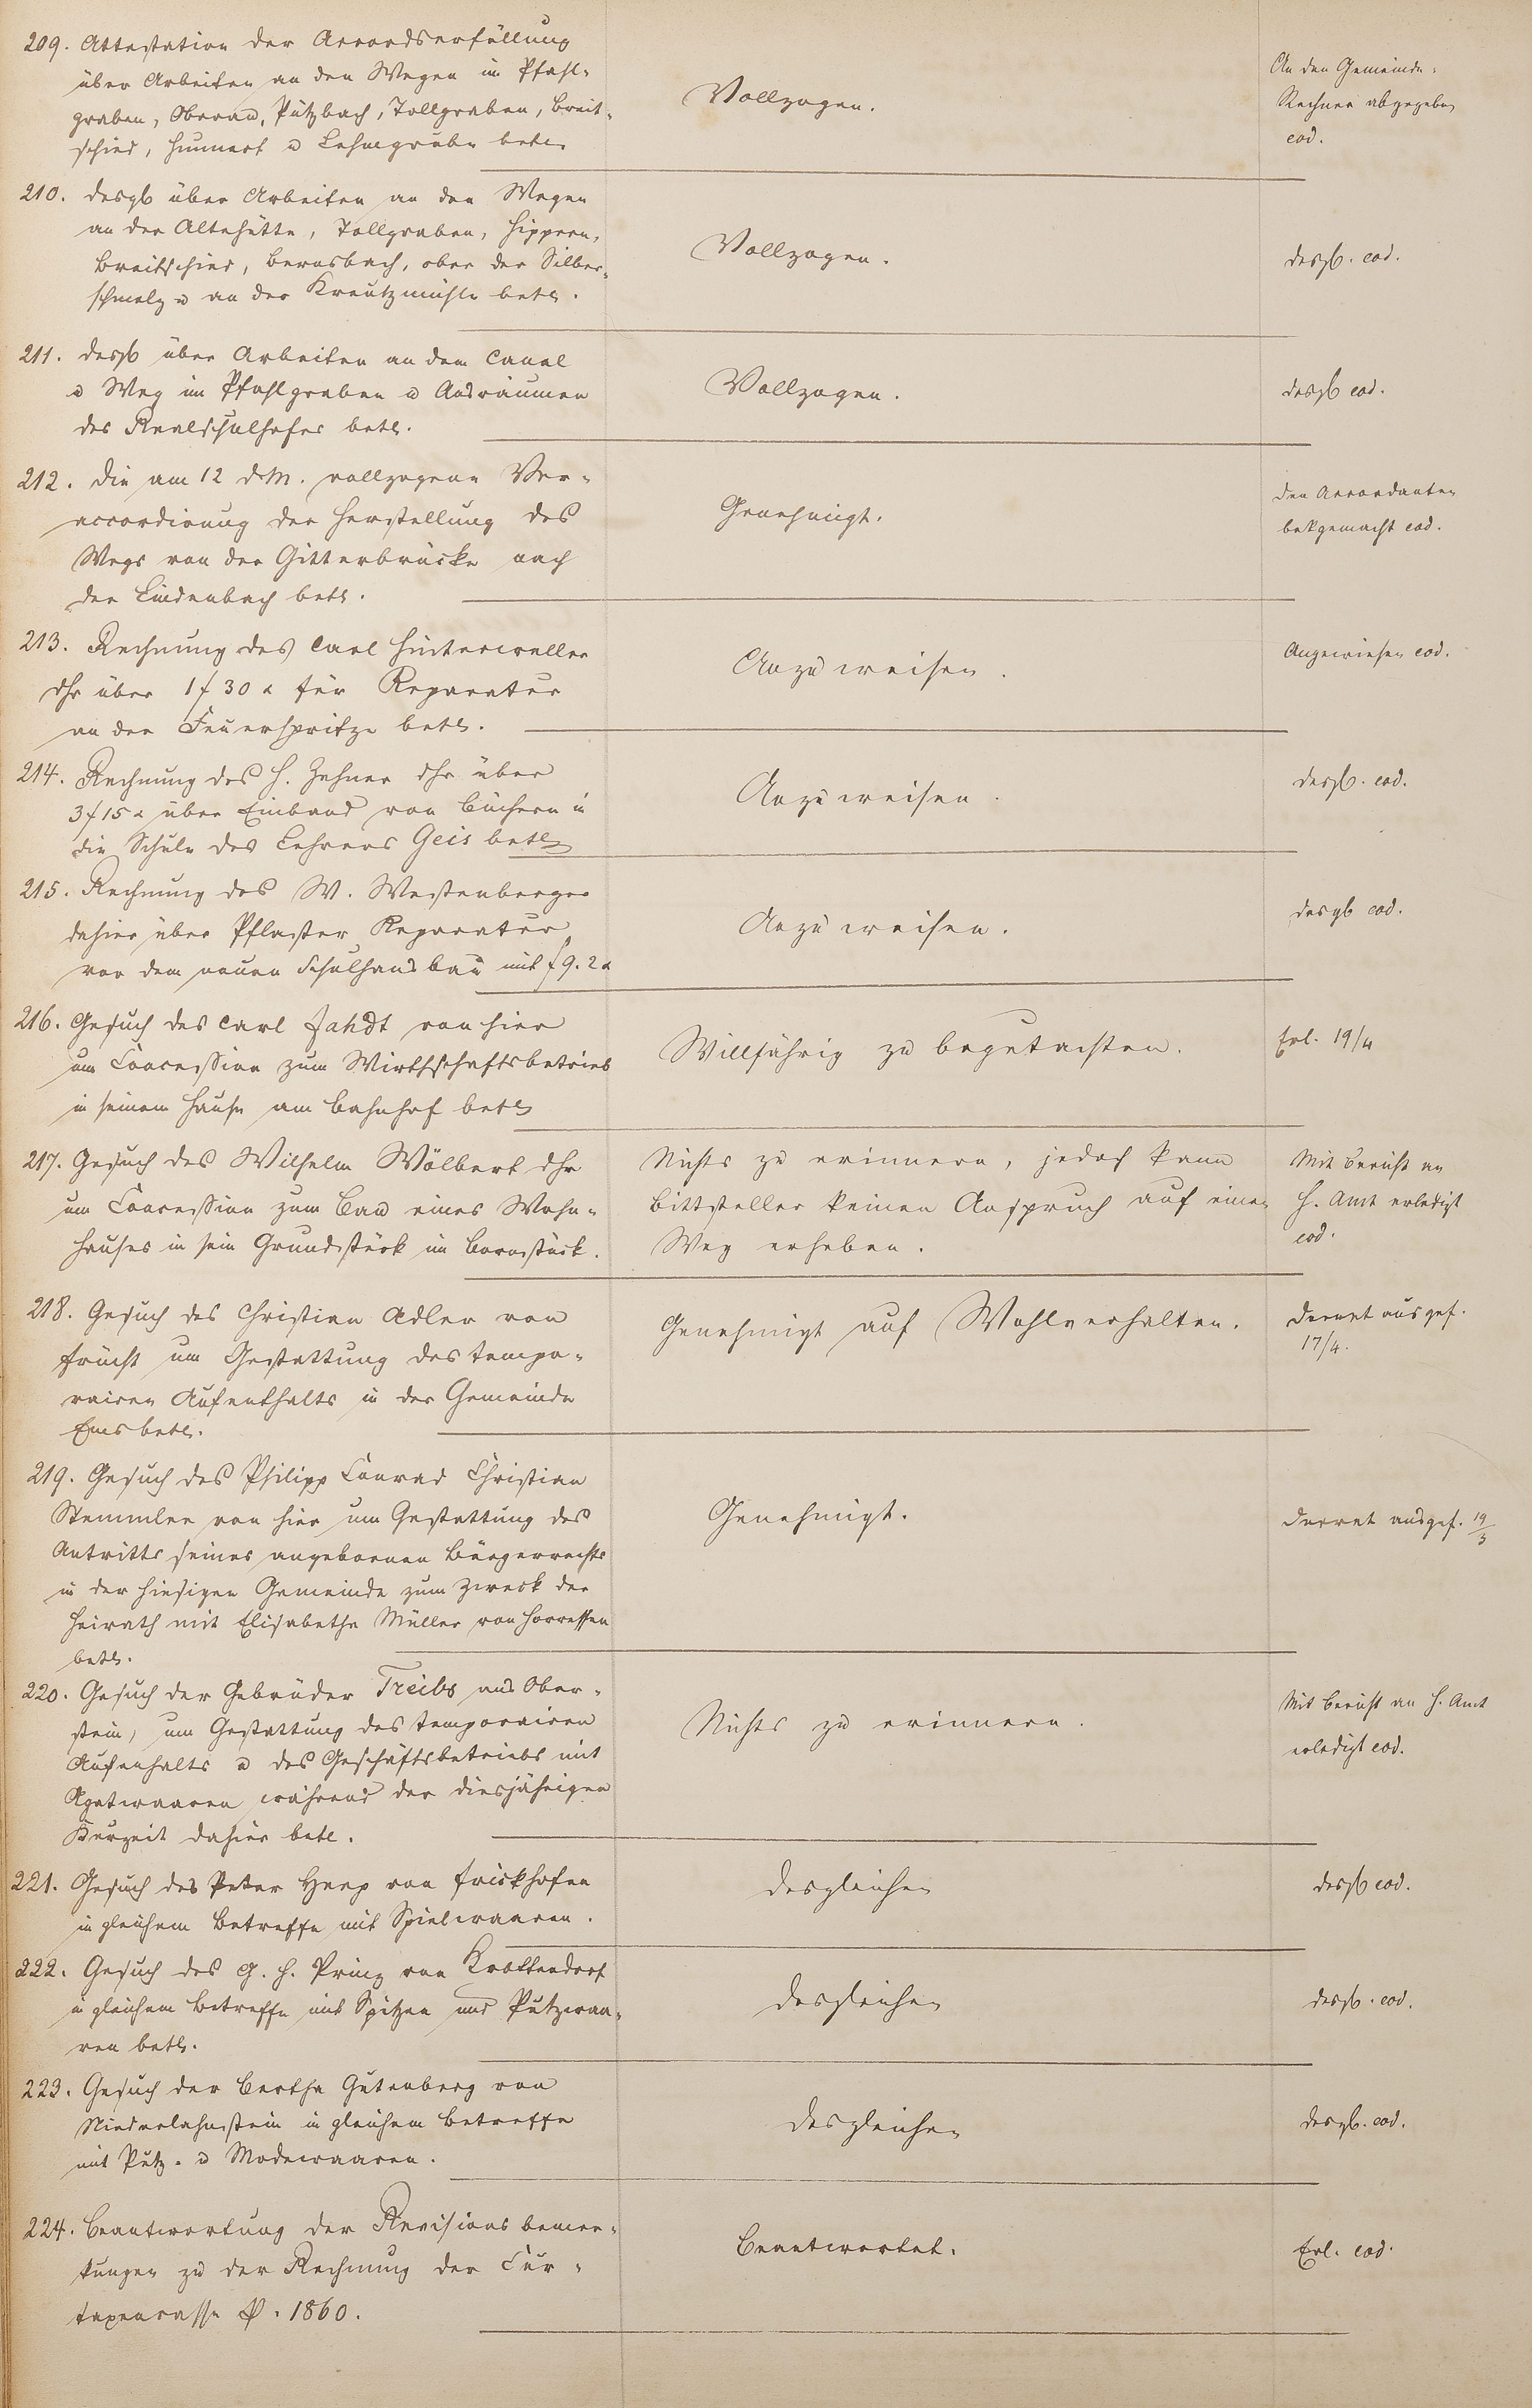 209. Attestation der Accordserfüllung
über Arbeiten an den Wegen im Pfahl-
graben, Oberau, Pützbach, Tollgraben, Breit-
schied, Hunnert u Lehmgrube betr.
Vollzogen.
An den Gemeinde-
Rechner abgegeben
eod.
210. desgl über Arbeiten an den Wegen
an der Altehütte, Tollgraben, Hippern,
Breitschied, Bernsbach, ober der Silber-
schmelz u an der Kreutzmühle betr.
Vollzogen.
desgl. eod.
211. desgl über Arbeiten an dem Canal
u Weg im Pfahlgraben u Ausräumen
des Realschulhofes betr.
Vollzogen.
desgl eod.
212. Die am 12 d.M. vollzogene Ver-
accordirung der Herstellung des
Wegs von der Gitterbrücke nach
der Lindenbach betr.
Genehmigt.
den Accordanten
bekgemacht eod.
213. Rechnung des Carl Hinterweller
dhr über 1 f 30 x für Reparatur
an der Feuerspritze betr.
Anzuweisen.
Angewiesen eod.
214. Rechnung des H. Zehner dhr über
3 f 15 x über Einband von Büchern in
die Schule des Lehrers Geis betr
Anzuweisen.
desgl. eod.
215. Rechnung des W. Westenberger
dahier über Pflaster Reparatur
vor dem neuen Schulhausbau mit f 9. 2 x
Anzuweisen.
desgl eod.
216. Gesuch des Carl Jahdt von hier
um Concession zum Wirthschaftsbetrieb
in seinem Hause am Bahnhof betr
Willfährig zu begutachten.
Erl. 19/4
217. Gesuch des Wilhelm Wölbert dhr
um Concession zum Bau eines Wohn-
hauses in sein Grundstück im Bornstück.
Nichts zu erinnern, jedoch kann
Bittsteller keinen Anspruch auf einen
Weg erheben.
Mit Bericht an
H. Amt erledigt
eod.
218. Gesuch des Christian Adler von
Frücht um Gestattung des tempo-
rairen Aufenthalts in der Gemeinde
Ems betr.
Genehmigt auf Wohlverhalten.
Decret ausgef.
17/4.
219. Gesuch des Philipp Conrad Christian
Stemmler von hier um Gestattung des
Antritts seines angebornen Bürgerrechts
in der hiesigen Gemeinde zum Zweck der
Heirath mit Elisabethe Müller von Horressen
betr.
Genehmigt.
Decret ausgef. 19/3
220. Gesuch der Gebrüder Treibs aus Ober-
stein, um Gestattung des temporairen
Aufenhalts u des Geschäftsbetriebs mit
Agatwaaren während der diesjährigen
Kurzeit dahier betr.
Nichts zu erinnern.
Mit Bericht an H. Amt
erledigt eod.
221. Gesuch des Peter Heep von Frickhofen
in gleichem Betreffe mit Spielwaaren.
desgleichen
desgl eod.
222. Gesuch des G. H. Prinz von Krottendorf
in gleichem Betreffe mit Spitzen und Putzwaa-
ren betr.
desgleichen
desgl. eod.
223. Gesuch der Bertha Gutenberg von
Niederlahnstein in gleichem Betreffe
mit Putz- u Modewaaren.
desgleichen
desgl. eod.
224. Beantwortung der Revisions bemer-
kungen zu der Rechnung der Cur-
taxencasse p. 1860.
Beantwortet.
Erl. eod.